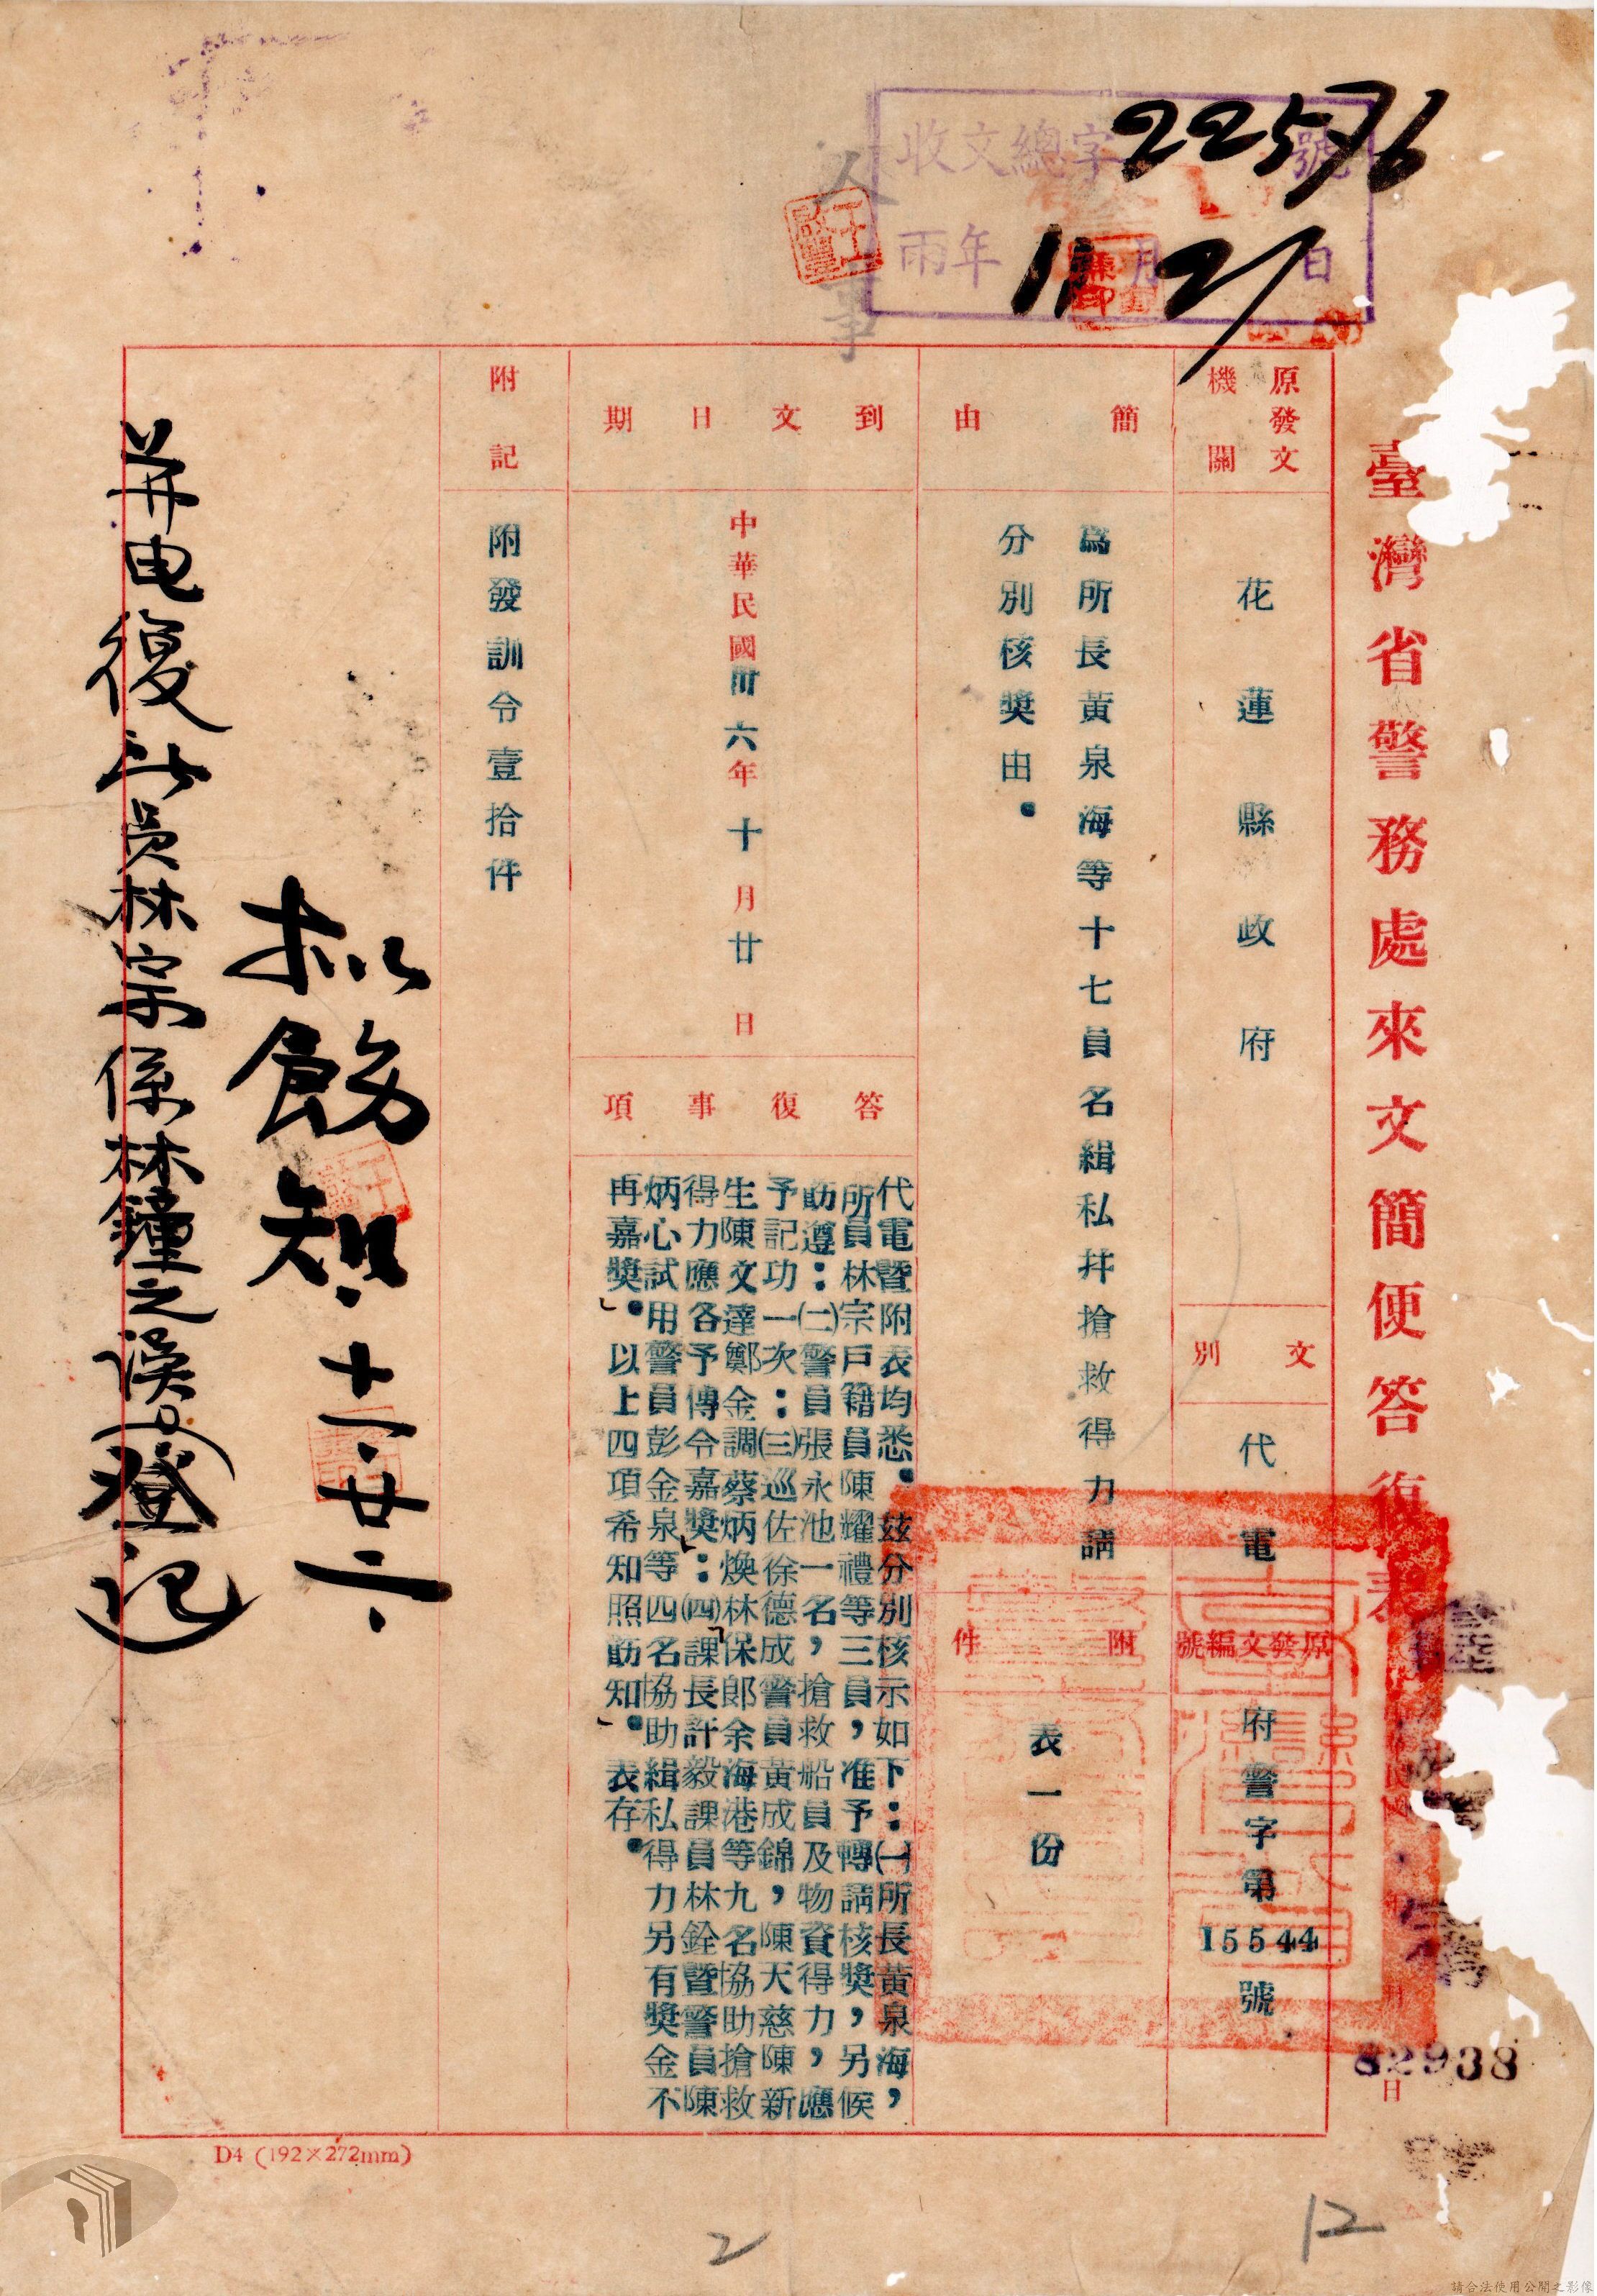 收文總字 22576 號
兩年 11月21日
人事
臺灣省警務處來文簡便答復表
原發文機關
花蓮縣政府
文別
代電
原發文編號
府警字第15544號
簡由
為所長黃泉海等十七員名緝私并搶救得力請
分別核獎由。
附件
表一份
到文日期
中華民國卅六年十月廿日
答復事項
代電暨附表均悉。茲分別核示如下：㈠所長黃泉海，
所員林宗戶籍員陳耀禮等三員，准予轉請核獎，另候
飭遵：㈡警員張永池一名，搶救船員及物資得力，應
予記功一次：㈢巡佐徐德成警員黃成錦，陳天慈陳新
生陳文達鄭金調蔡炳煥林保郎余海港等九名協助搶救
得力應各予傳令嘉獎：㈣課長許毅課員林銓暨警員陳
炳心試用警員彭金泉等四名協助緝私得力另有獎金不
再嘉獎。以上四項希知照飭知。表存。
附記
附發訓令壹拾件
飭知 十一.廿二.
并电復 員林宗係林鐘之誤 登記
82938
日
D4 (192×272mm)
2
12
請合法使用公開之影像